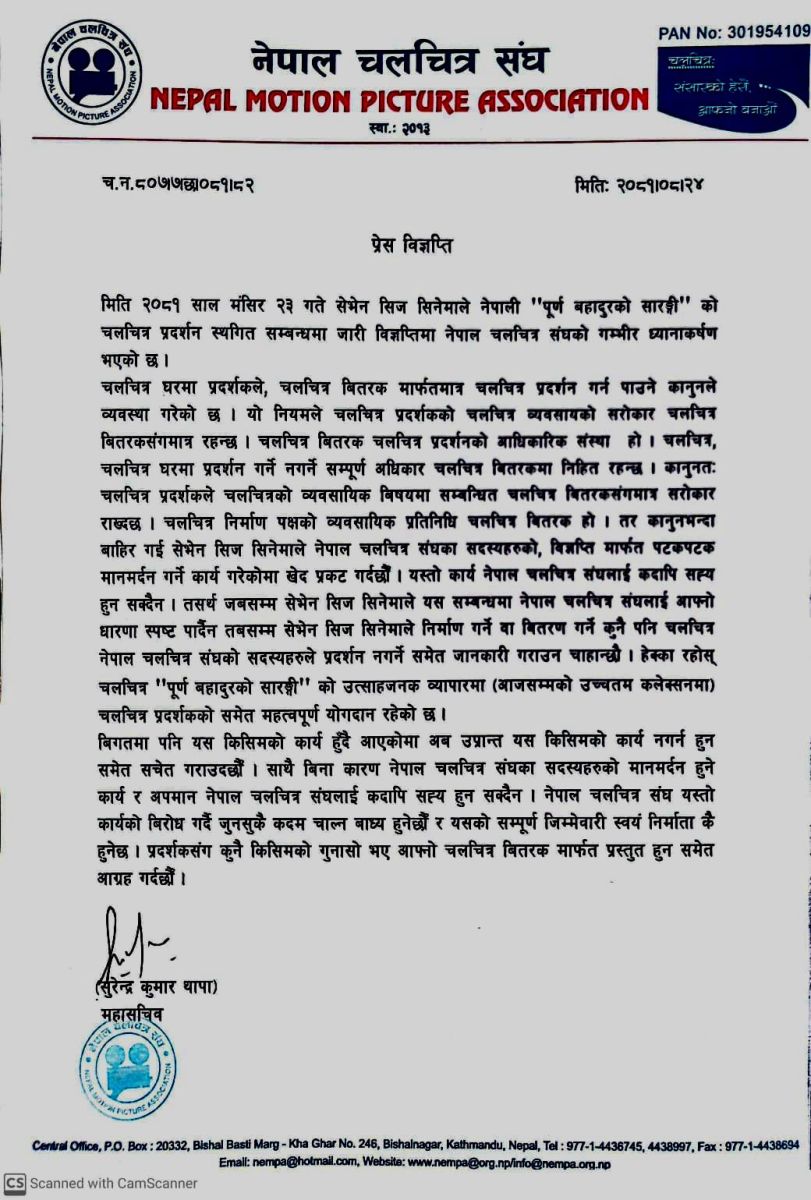 नेपाल चलचित्र संघ
NEPAL MOTION PICTURE ASSOCIATION
PAN No: 301954109
चलचित्रः
संसारको हेरौं, ...
आफ्नो बजाऔं
नेपाल चलचित्र संघ
NEPAL MOTION PICTURE ASSOCIATION
स्था.: २०१३
च.न.८०७७छ।०८१।८२
मितिः २०८१।०८।२४
प्रेस विज्ञप्ति
मिति २०८१ साल मंसिर २३ गते सेभेन सिज सिनेमाले नेपाली "पूर्ण बहादुरको सारङ्गी" को
चलचित्र प्रदर्शन स्थगित सम्बन्धमा जारी विज्ञप्तिमा नेपाल चलचित्र संघको गम्भीर ध्यानाकर्षण
भएको छ ।
चलचित्र घरमा प्रदर्शकले, चलचित्र बितरक मार्फतमात्र चलचित्र प्रदर्शन गर्न पाउने कानुनले
व्यवस्था गरेको छ । यो नियमले चलचित्र प्रदर्शकको चलचित्र व्यवसायको सरोकार चलचित्र
बितरकसंगमात्र रहन्छ । चलचित्र बितरक चलचित्र प्रदर्शनको आधिकारिक संस्था हो । चलचित्र,
चलचित्र घरमा प्रदर्शन गर्ने नगर्ने सम्पूर्ण अधिकार चलचित्र बितरकमा निहित रहन्छ । कानुनतः
चलचित्र प्रदर्शकले चलचित्रको व्यवसायिक बिषयमा सम्बन्धित चलचित्र बितरकसंगमात्र सरोकार
राख्दछ । चलचित्र निर्माण पक्षको व्यवसायिक प्रतिनिधि चलचित्र बितरक हो । तर कानुनभन्दा
बाहिर गई सेभेन सिज सिनेमाले नेपाल चलचित्र संघका सदस्यहरुको, विज्ञप्ति मार्फत पटकपटक
मानमर्दन गर्ने कार्य गरेकोमा खेद प्रकट गर्दछौं । यस्तो कार्य नेपाल चलचित्र संघलाई कदापि सह्य
हुन सक्दैन । तसर्थ जबसम्म सेभेन सिज सिनेमाले यस सम्बन्धमा नेपाल चलचित्र संघलाई आफ्नो
धारणा स्पष्ट पार्दैन तबसम्म सेभेन सिज सिनेमाले निर्माण गर्ने वा बितरण गर्ने कुनै पनि चलचित्र
नेपाल चलचित्र संघको सदस्यहरुले प्रदर्शन नगर्ने समेत जानकारी गराउन चाहान्छौ । हेक्का रहोस्
चलचित्र "पूर्ण बहादुरको सारङ्गी" को उत्साहजनक व्यापारमा (आजसम्मको उच्चतम कलेक्सनमा)
चलचित्र प्रदर्शकको समेत महत्वपूर्ण योगदान रहेको छ ।
बिगतमा पनि यस किसिमको कार्य हुँदै आएकोमा अब उप्रान्त यस किसिमको कार्य नगर्न हुन
समेत सचेत गराउदछौं । साथै बिना कारण नेपाल चलचित्र संघका सदस्यहरुको मानमर्दन हुने
कार्य र अपमान नेपाल चलचित्र संघलाई कदापि सह्य हुन सक्दैन । नेपाल चलचित्र संघ यस्तो
कार्यको बिरोध गर्दै जुनसुकै कदम चाल्न बाध्य हुनेछौं र यसको सम्पूर्ण जिम्मेवारी स्वयं निर्माता कै
हुनेछ । प्रदर्शकसंग कुनै किसिमको गुनासो भए आफ्नो चलचित्र बितरक मार्फत प्रस्तुत हुन समेत
आग्रह गर्दछौं ।
(सुरेन्द्र कुमार थापा)
महासचिव
नेपाल चलचित्र संघ
NEPAL MOTION PICTURE ASSOCIATION
Central Office, P.O. Box : 20332, Bishal Basti Marg - Kha Ghar No. 246, Bishalnagar, Kathmandu, Nepal, Tel : 977-1-4436745, 4438997, Fax : 977-1-4438694
Email: nempa@hotmail.com, Website: www.nempa@org.np/info@nempa.org.np
CS Scanned with CamScanner